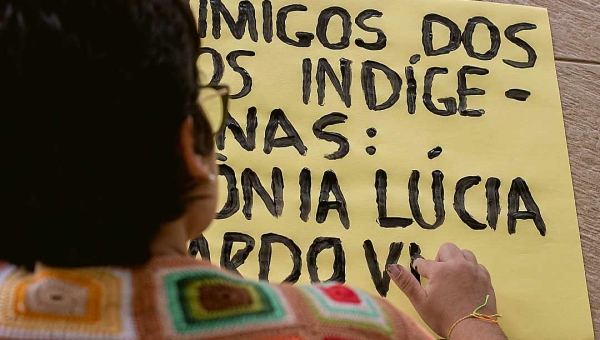 IMIGOS DOS
OS INDÍGE-
NAS:
ÔNIA LÚCIA
ARDO